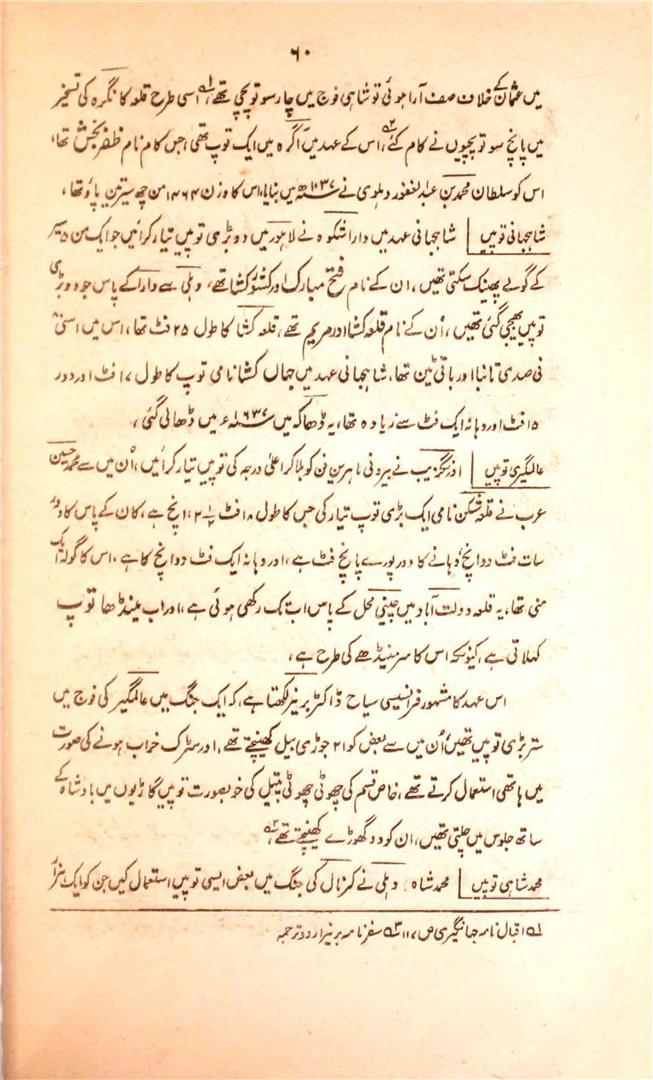 ۶۰
میں عثمان کے خلاف صف آرا ہوئی تو شاہی فوج میں چار سو توپچی تھے، اسی طرح قلعہ کانگرہ کی تسخیر
میں پانچ سو توپچیوں نے کام کئے، اس کے عہد میں آگرہ میں ایک توپ تھی، جس کا م نام ظفر بخش تھا،
اس کو سلطان محمد بن عبد الغفور دہلوی نے ۱۰۳۷ھ میں بنایا، اس کا وزن ۱۴۶۴ من چھ سیر تین پاؤ تھا،
شاہجہانی توپیں شاہجہانی عہد میں دارا شکوہ نے لاہور میں دو بڑی توپیں تیار کرائیں جو ایک من ۵ سیر
کے گولے پھینک سکتی تھیں، ان کے نام فتح مبارک اور کشور کشا تھے، دہلی سے دارا کے پاس جو دو بڑی
توپیں بھیجی گئی تھیں، اُن کے نام قلعہ کشا اور مریم تھے، قلعہ کشا کا طول ۲۵ فٹ تھا، اس میں اسّی
فی صدی تانبا اور باقی ٹین تھا، شاہجہانی عہد میں جہاں کشا نامی توپ کا طول ۱۷ فٹ اور دور
۱۵ فٹ اور دہانہ ایک فٹ سے زیادہ تھا، یہ ڈھاکہ میں ۱۶۳۷ء میں ڈھالی گئی،
عالمگیری توپیں اورنگزیب نے بیرونی ماہرین فن کو بلا کر اعلیٰ درجہ کی توپیں تیار کرائیں، اُن میں سے محمد حسین
عرب نے قلعہ شکن نامی ایک بڑی توپ تیار کی جس کا طول ۱۸ فٹ انچ ہے، کان کے پاس کا دور
سات فٹ دو انچ دہانے کا دور پورے پانچ فٹ ہے، اور دہانہ ایک فٹ دو انچ کا ہے، اس کا گولہ ایک
منی تھا، یہ قلعہ دولت آباد میں چینی محل کے پاس اب تک رکھی ہوئی ہے، اور اب مینڈھا توپ
کہلاتی ہے، کیونکہ اس کا سر مینڈھے کی طرح ہے،
اس عہد کا مشہور فرانسیسی سیاح ڈاکٹر برنیر لکھتا ہے، کہ ایک جنگ میں عالمگیر کی فوج میں
ستر بڑی توپیں تھیں اُن میں سے بعض کو ۲۱ جوڑی بیل کھینچتے تھے، اور سڑک خراب ہونے کی صورت
میں ہاتھی استعمال کرتے تھے، خاص قسم کی چھوٹی چھوٹی پیتل کی خوبصورت توپیں گاڑیوں میں بادشاہ کے
ساتھ جلوس میں چلتی تھیں، ان کو دو گھوڑے کھینچتے تھے،
محمد شاہی توپیں محمد شاہ دہلی نے کرنال کی جنگ میں بعض ایسی توپیں استعمال کیں جن کو ایک ہزار
۱ اقبال نامہ جہانگیری ص ۱۱۷ سفر نامہ برنیر اردو ترجمہ